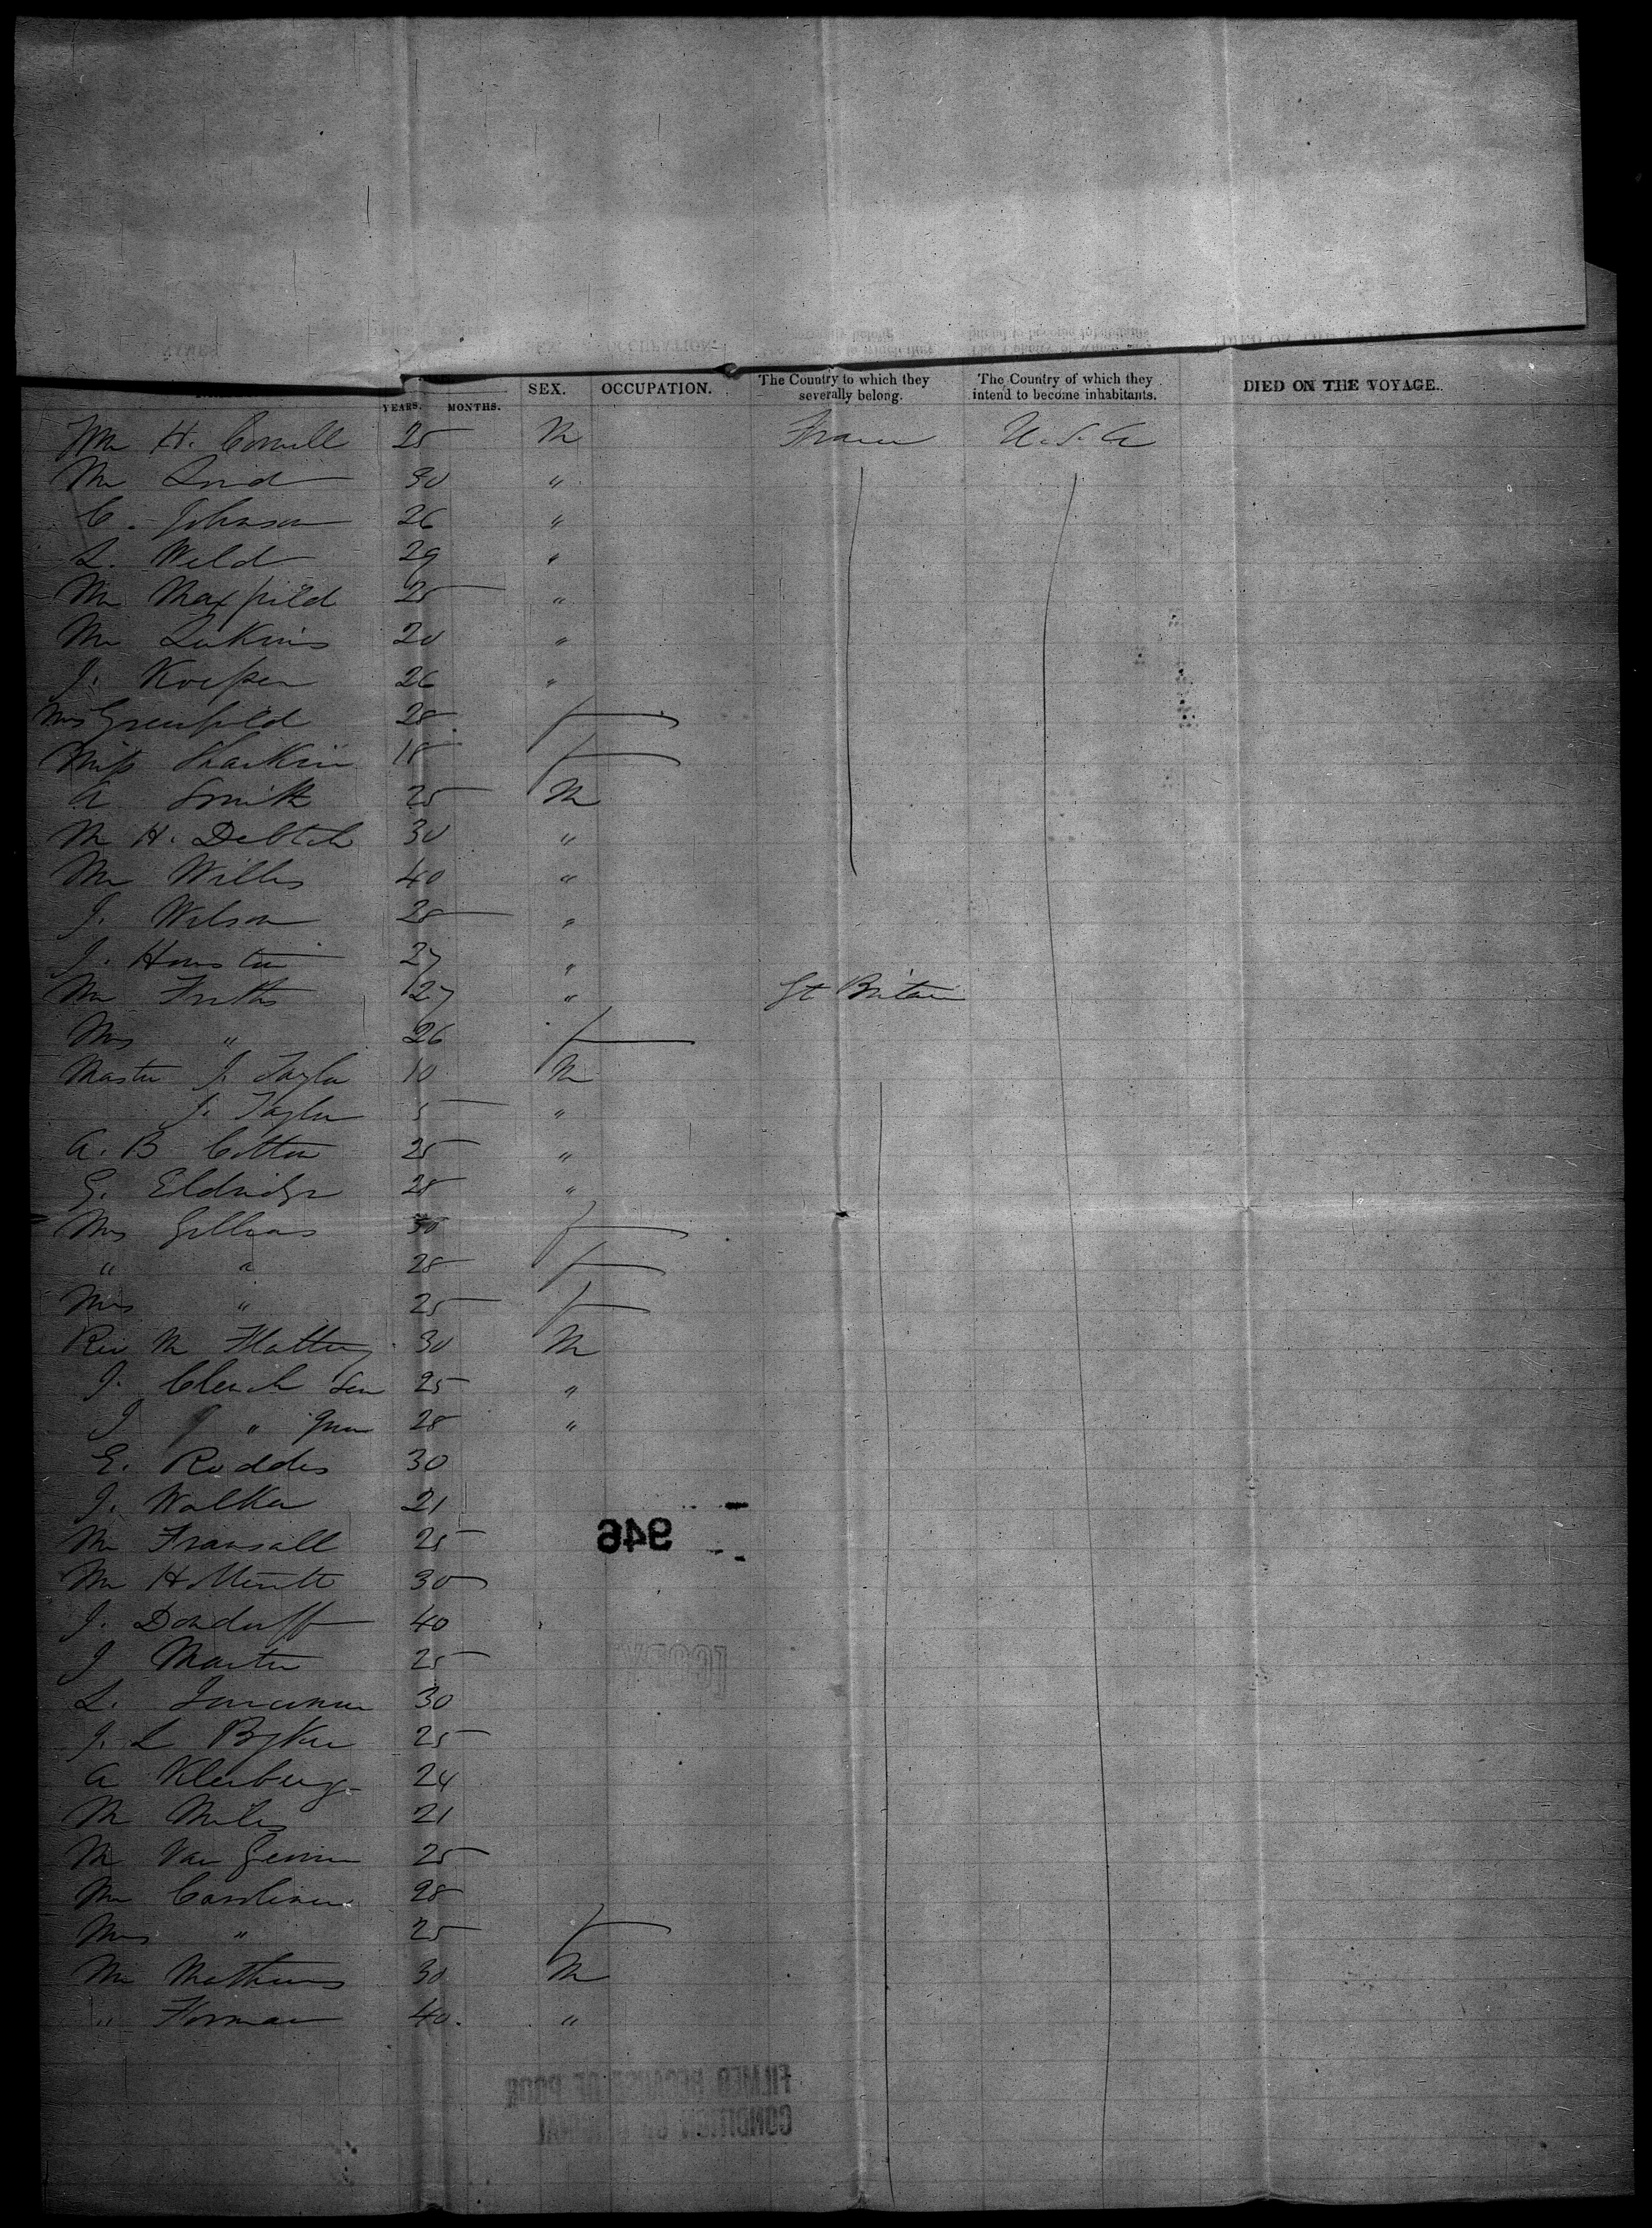 YEARS. MONTHS. SEX. OCCUPATION. The Country to which they severally belong. The Country of which they intend to become inhabitants. DIED ON THE VOYAGE.
Wm H. Cornell 25 M France U.S.A
Mr Lind 30 "
C. Johnson 26 "
L. Weld 29 "
Mr Maxfield 25 "
Mr Lukins 20 "
J. 26 "
Mrs Greenfield 28 f
Miss 18 f
A Smith 25 M
Mr H. 30 "
Mr Willes 40 "
J. Wilson 28 "
J. Houston 27 "
Mr Firths 27 " Gt Britain
Mrs " 26 f
Master J. Taylor 10 M
J. Taylor 5 "
A. B Cotton 25 "
G. Eldridge 28 "
Mrs Gillias 30 f
" " 28 f
Mrs " 25 f
Rev Mr Flattery 30 M
J. Clench Sen 25 "
J " Jun 28 "
E. Roddes 30
J. Walker 21
Mr Fransall 25
Mr 30
J. 40
J Martin 25
L. 30
J. L 25
A Kleiberg 24
Mr Miles 21
Mr Van 25
Mr 28
Mrs " 25 f
Mr Mathews 30 M
" Forman 40. "
946
[COPY]
FILMED BECAUSE OF POOR
CONDITION OF ORIGINAL